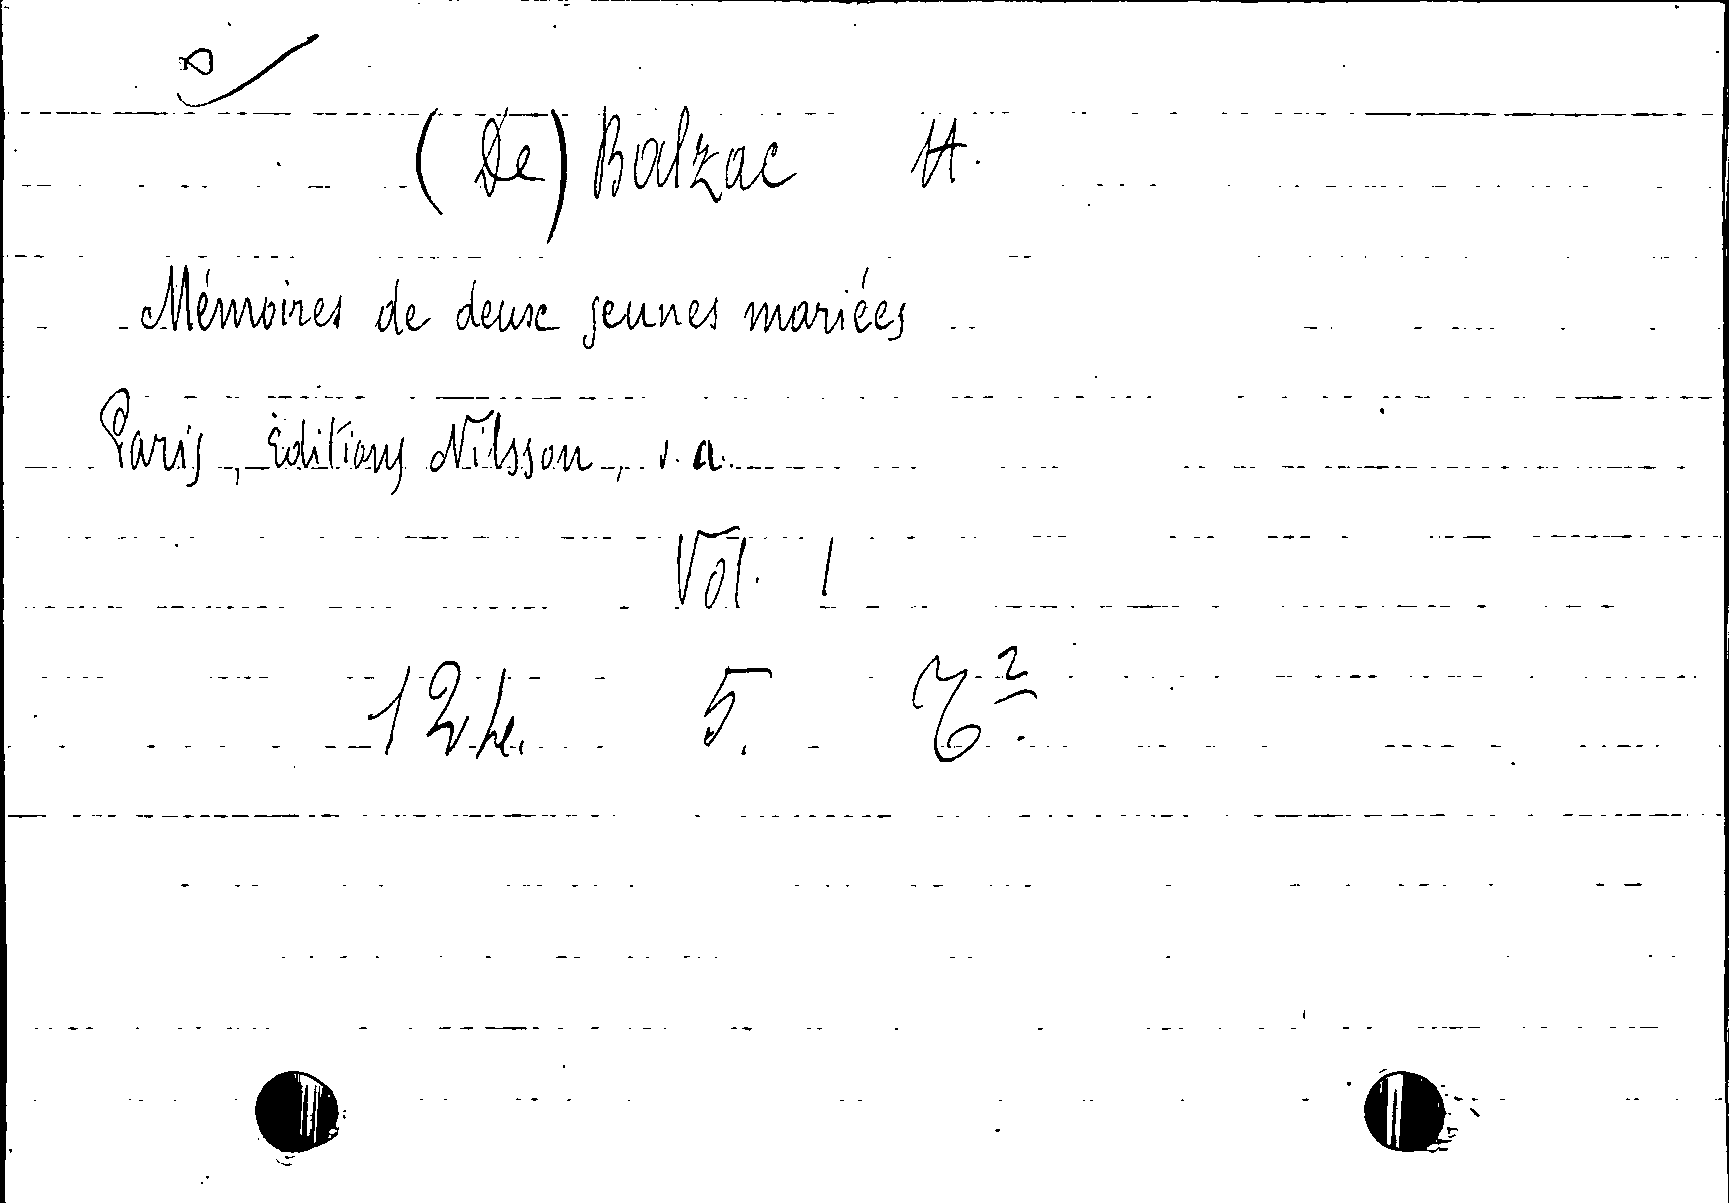 (De) Balzac H.
Mémoires de deux jeunes mariées
Paris, Éditions Nilsson, s.a.
Vol. 1
12 5.